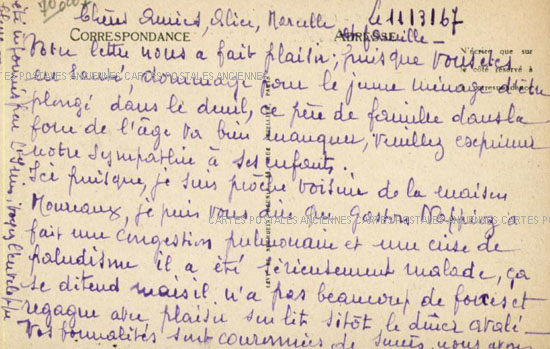 Chères Amies, Alice, Marcelle le 11/3/67
et famille -
CORRESPONDANCE ADRESSE
Votre lettre nous a fait plaisir, puisque vous êtes
N'écrire que sur
le côté réservé à
la correspondance
en santé, dommage pour le jeune ménage d'être
CARTES POSTALES ANCIENNES CARTES POSTALES ANCIENNES
plongé dans le deuil, ce père de famille dans la
force de l'âge va bien manquer, veuillez exprimer
notre sympathie à ses enfants.
Ici puisque, je suis proche voisine de la maison
Moureaux, je puis vous dire que Gaston a
CARTES POSTALES ANCIENNES CARTES POSTALES ANCIENNES
fait une congestion pulmonaire et une crise de
paludisme il a été sérieusement malade, ça
se ditend mais il n'a pas beaucoup de forces et
regagne avec plaisir son lit sitôt le dîner avalé -
Vos bonnalités sont couronnées de succès nous avons